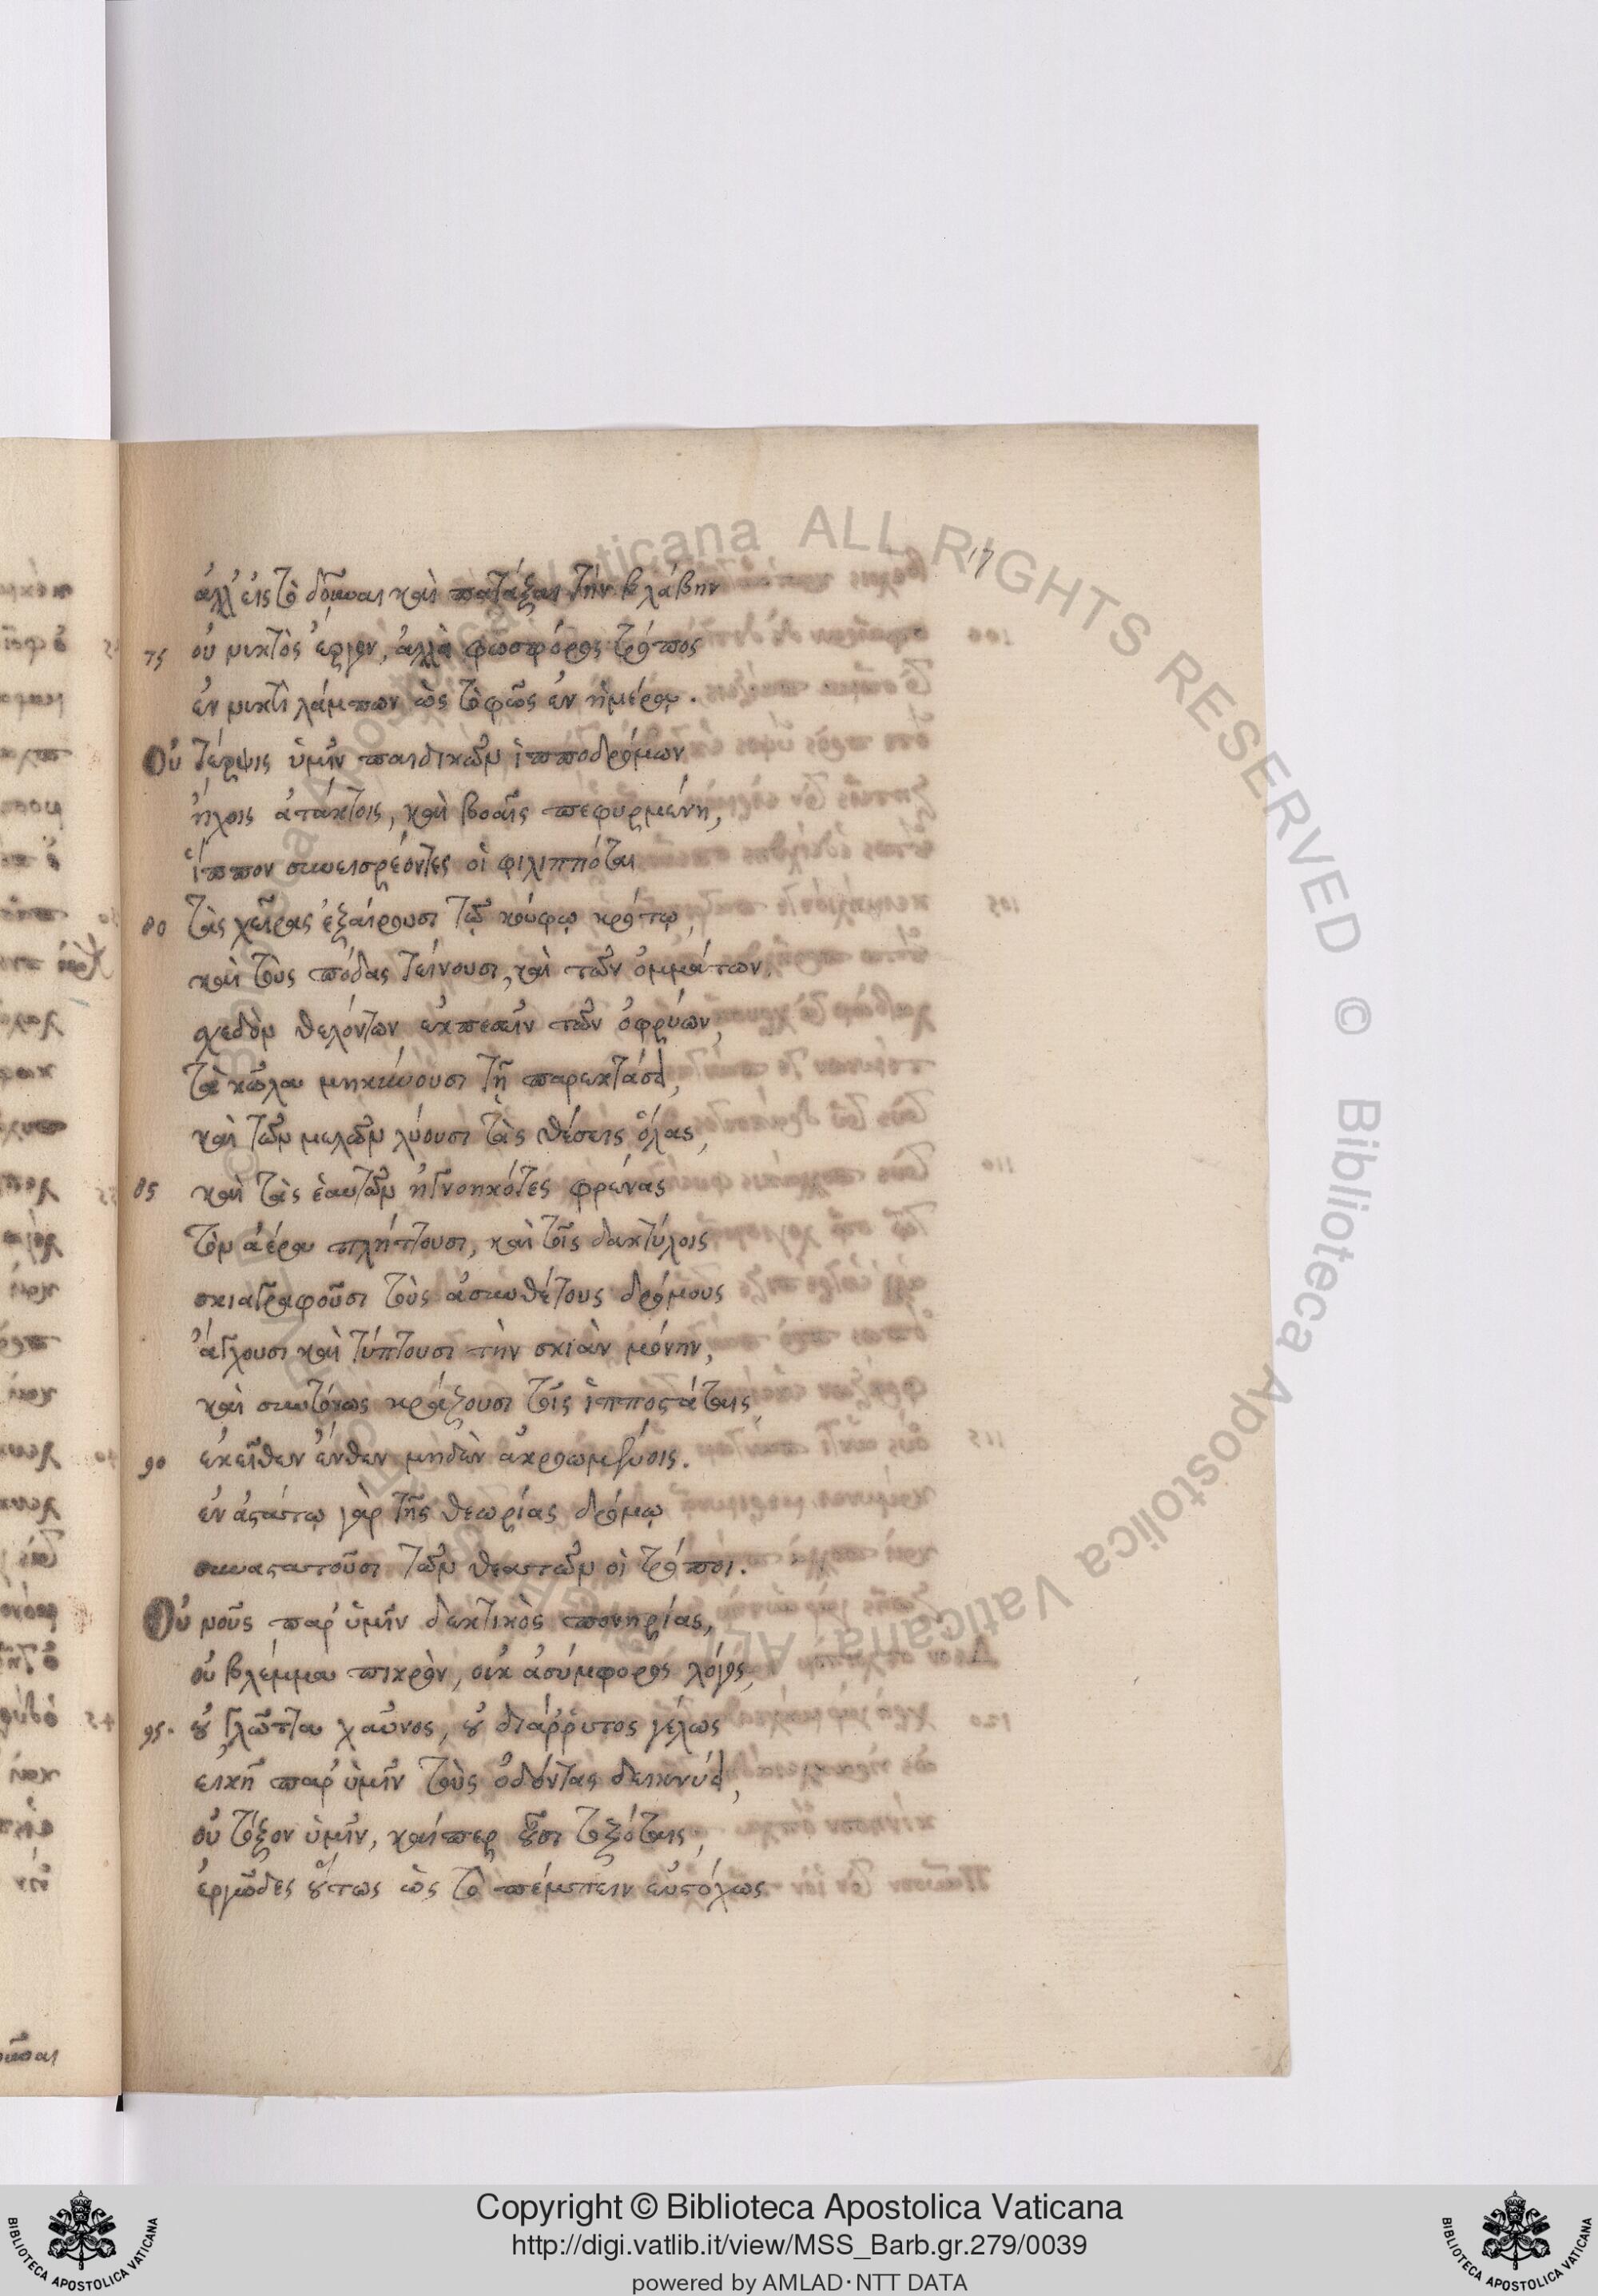 17
ἀλλ' εἰς τὸ δοῦναι καὶ πατάξαι τὴν βλάβην
75 οὐ νυκτὸς ἔργον, ἀλλὰ φωσφόρος τρόπος
ἐν νυκτὶ λάμπων ὡς τὸ φῶς ἐν ἡμέρᾳ.
Οὐ τέρψις ὑμῖν παιδικῶν ἱπποδρόμων
ἤχοις ἀτάκτοις, καὶ βοαῖς πεφυρμένη,
ἵππον συνεισρέοντες οἱ φιλιππόται
80 τὰς χεῖρας ἐξαίρουσι τῷ κούφῳ κρότῳ,
καὶ τοὺς πόδας τείνουσι, καὶ τῶν ὀμμάτων,
σχεδὸν θελόντων ἐκπεσεῖν τῶν ὀφρύων,
τὰ κῶλα μηκύνουσι τῇ παρεκτάσει,
καὶ τῶν μελῶν λύουσι τὰς θέσεις ὅλας,
85 καὶ τὰς ἑαυτῶν ἠγνοηκότες φρένας
τὸν ἀέρα πλήττουσι, καὶ τοῖς δακτύλοις
σκιαγραφοῦσι τοὺς ἀσυνθέτους δρόμους
ἄγχουσι καὶ τύπτουσι τὴν σκιὰν μόνην,
καὶ συντόνως κράζουσι τοῖς ἱπποστάταις,
90 ἐκεῖθεν ἔνθεν μηδὲν ἀκροωμένοις.
ἐν ἀστάτῳ γὰρ τῆς θεωρίας δρόμῳ
συναστατοῦσι τῶν θεατῶν οἱ τρόποι.
Οὐ νοῦς παρ' ὑμῖν δεκτικὸς πονηρίας,
οὐ βλέμμα πικρὸν, οὐκ ἀσύμφορος λόγος,
95. οὐ γλῶττα χαῦνος, οὐ διάρρυτος γέλως
εἰκῆ παρ' ὑμῖν τοὺς ὀδόντας δεικνύει,
οὐ τόξον ὑμῖν, καίπερ οὖσι τοξόταις,
ἐργῶδες οὕτως ὡς τὸ πέμπειν εὐστόχως
Copyright © Biblioteca Apostolica Vaticana
http://digi.vatlib.it/view/MSS_Barb.gr.279/0039
powered by AMLAD·NTT DATA